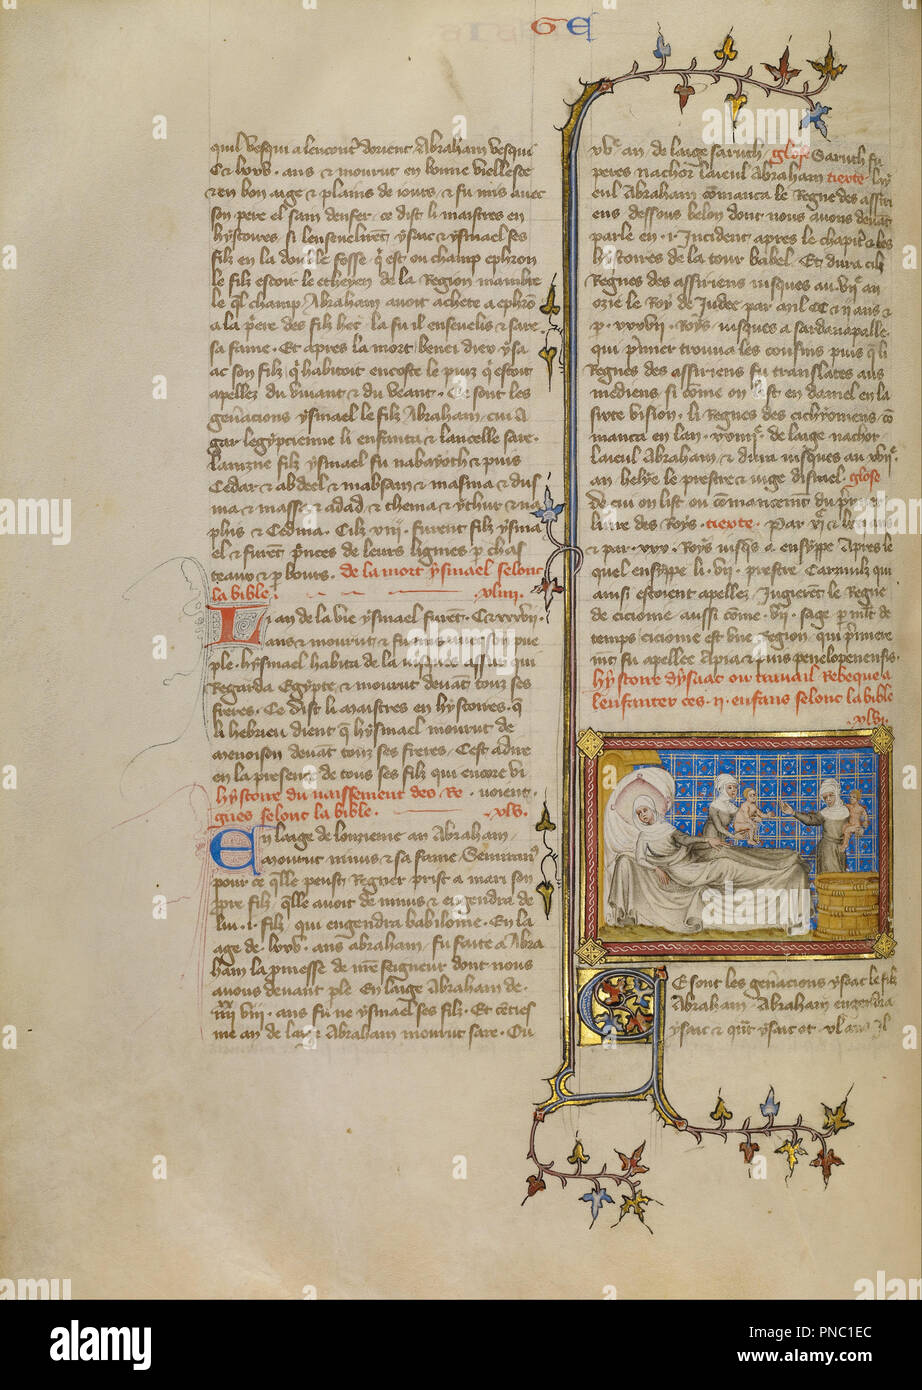 G E
quil vesqui a lencont dorient Abraham vesqui
ans & mourut en bonne viellesce
& en bon aige & plains de iours & fu mis avec
son pere el sain denfer ce dist li maistres en
hystoires si lensevelirent ysaac & ysmael ses
filz en la double fosse q est ou champ ephron
le filz escoir le etheyen de la Region mambre
le ql champ Abraham avoit achete a ephron
a la pere des filz het la fu il ensevelis & sare
sa fame Et apres la mort benei diex ysa
ac son filz q habitoit encoste le puiz q estoit
apellez du vivant & du veant Ce sont les
generacions ysmael le filz Abraham cui a
gar legypcienne li enfanta & lancelle sare
lainzne filz ysmael fu nabayoth & puis
Cedar & abdeel & mabsam & masma & dus
ma & masse & adad & thema & ythur & na
phis & Cedma Cilz furent filz ysma
el & furent princes de leurs lignies p chas
teaux & p bours. de la mort ysmael selonc
la bible. xliiii.
Li an de la vie ysmael furent
ans & mourut & fu mis avec son pue
ple hysmael habita de la
Regarda Egypte & mourut devant touz ses
freres Ce dist li maistres en hystoires q
li hebrieu dient q hysmael mourut de
menoison devant touz ses freres Cest adire
en la presence de tous ses filz qui encore vi
hystoire du naissement des Re voient.
gnes selonc la bible. xlv.
En laige de lonzieme an Abraham
mourut ninus & sa fame Semiramis
pour ce qlle peust Regner prist a mari son
ppre filz qlle avoit de ninus & engendra de
lui .i. filz qui engendra babilonie En la
age de ans abraham fu faite a Abra
ham la pmesse de nre seigneur dont nous
avons devant ple En laige Abraham de
ans fu ne ysmael ses filz Et
me an de laige Abraham mourut sare Ou
an de laige saruth glose Saruth fu
peres nachor laieul Abraham tiexte lay
eul Abraham comanca le Regne des assiri
ens dessous belon dont nous avons devant
parle en .i. Incident apres le chapitre des
hystoires de la tour babel Et dura cilz
Regnes des assiriens iusques au an
ozie le Roy de Judee par ans &
p Roys iusques a sardanapalle
qui primer trouva les coussins puis q li
Regnes des assiriens fu translates aus
mediens si come on list en daniel en la
sixte vision li Regnes des cichyoniens co
manca en lan de laige nachor
laieul Abraham & dura iusques au
an helye le prestre & iuge disrael glose
de cui on list ou comancement du premier
livre des Roys tiexte Par ans
& par Roys iusqs a ensyppe Apres le
quel ensyppe li prestre Carniulz qui
ainsi estoient apellez Jugierent le Regne
de cicione aussi come sage
temps cicione est une Region qui primere
ment fu apellee Apia & puis penelopenensis
hystoire dysaac ou travail Rebeque a
lenfanter ces .ii. enfans selonc la bible
xlvi.
Ce sont les generacions ysaac le filz
Abraham Abraham engendra
ysaac & quant ysaac ot xl ans il
alamy stock photo
a
alamy
Image ID: PNC1EC
www.alamy.com